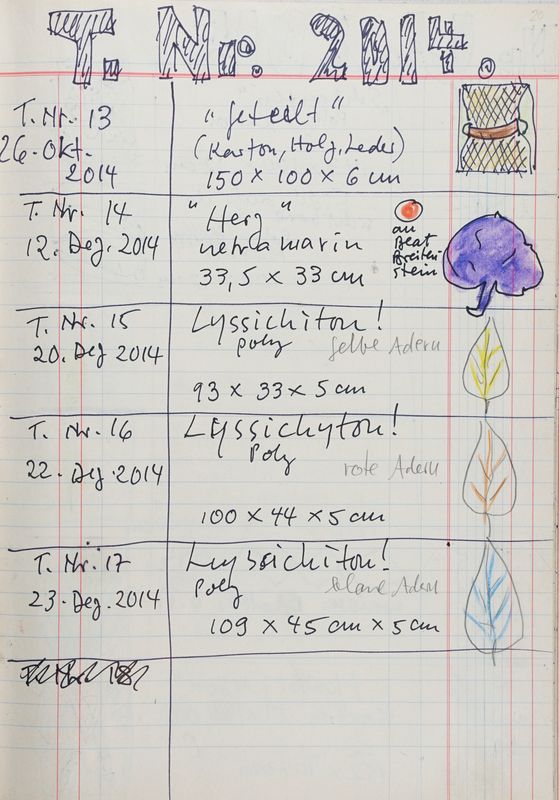 T. Nr. 2014.
T. Nr. 13
26. Okt.
2014
"geteilt"
(Karton, Holz, Leder)
150 x 100 x 6 cm
T. Nr. 14
12. Dez. 2014
"Herz"
33,5 x 33 cm
an
Beat
Breiten-
stein
T. Nr. 15
20. Dez 2014
Lyssichiton!
poly
gelbe Adern
93 x 33 x 5 cm
T. Nr. 16
22. Dez. 2014
Lyssichyton!
Poly
rote Adern
100 x 44 x 5 cm
T. Nr. 17
23. Dez. 2014
Lyssichiton!
Poly
blaue Adern
109 x 45 cm x 5 cm